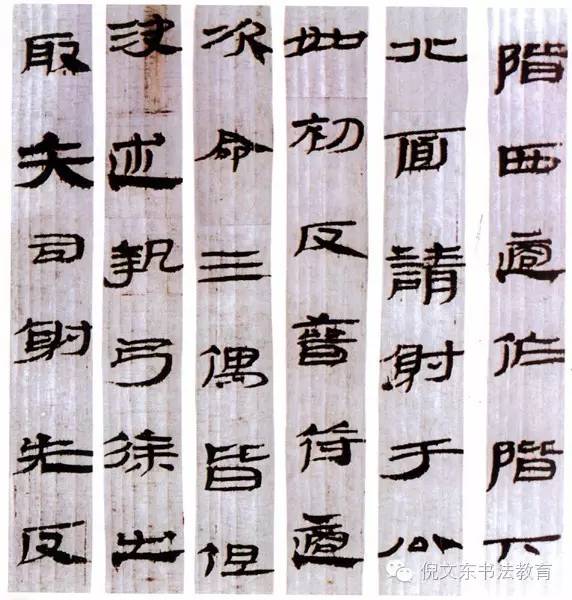 階西適作階下
北面請射于公
如初反晉適
次命三偶皆但
決述執弓徐出
取矢司射先反
倪文东书法教育